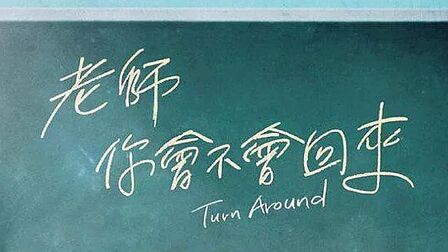 老師
你會不會回來
Turn Around